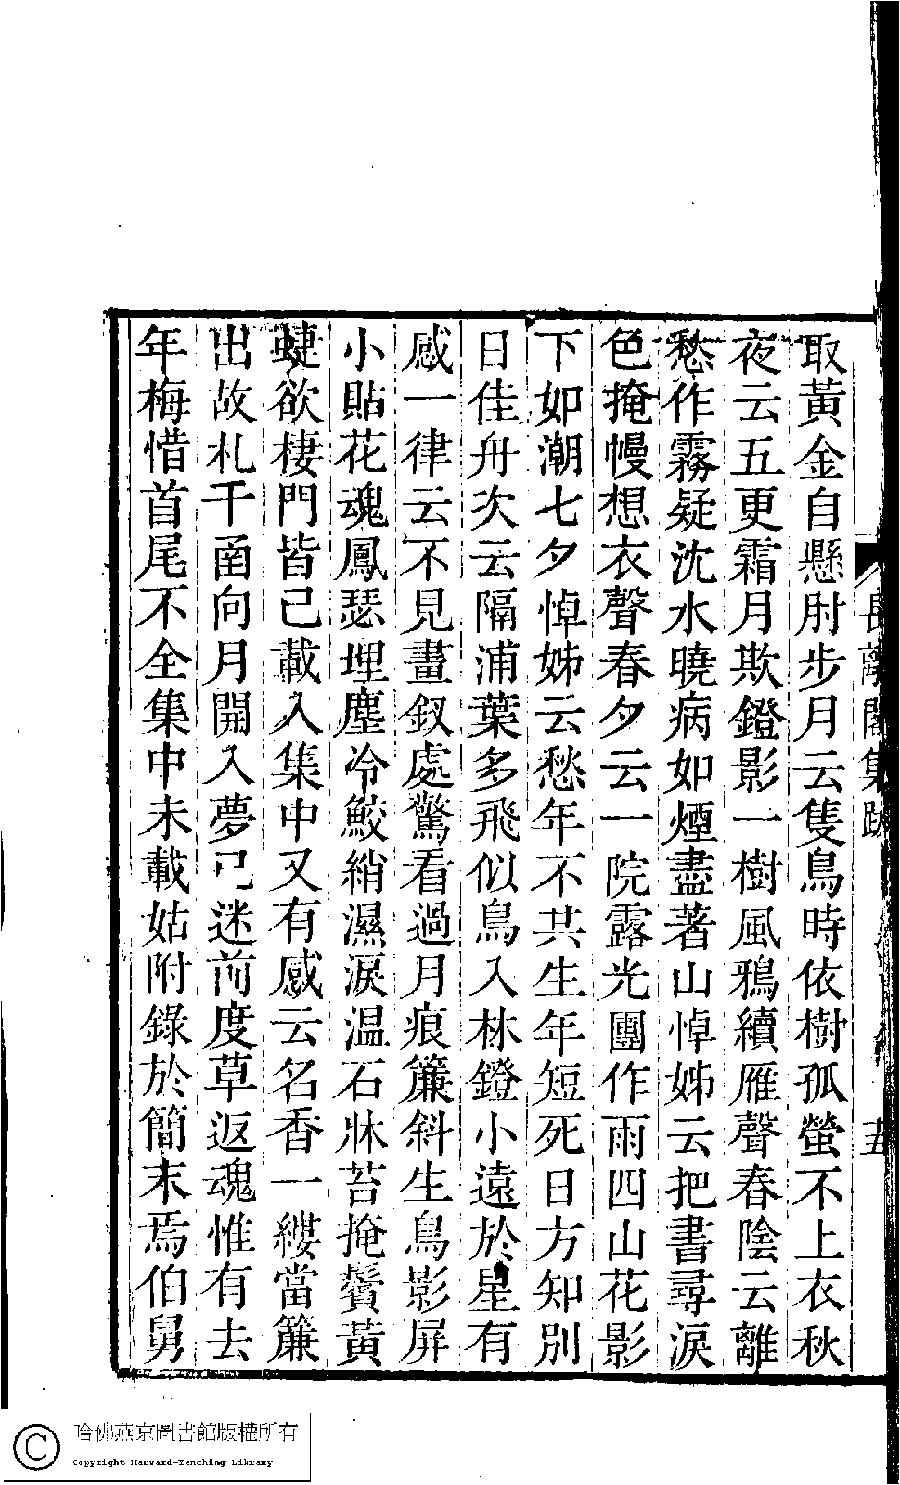 長離閣集跋
五
取黃金自懸肘步月云隻鳥時依樹孤螢不上衣秋
夜云五更霜月欺鐙影一樹風鴉續雁聲春陰云離
愁作霧疑沈水曉病如煙盡著山悼姊云把書尋淚
色掩幔想衣聲春夕云一院露光團作雨四山花影
下如潮七夕悼姊云愁年不共生年短死日方知別
日佳舟次云隔浦葉多飛似鳥入林鐙小遠於星有
感一律云不見畫釵處驚看過月痕簾斜生鳥影屏
小貼花魂鳳瑟埋塵冷鮫綃濕淚温石牀苔掩鬢黃
蜨欲棲門皆已載入集中又有感云名香一縷當簾
出故札千函向月開入夢已迷前度草返魂惟有去
年梅惜首尾不全集中未載姑附錄於簡末焉伯舅
哈佛燕京圖書館版權所有
Copyright Harvard-Yenching Library